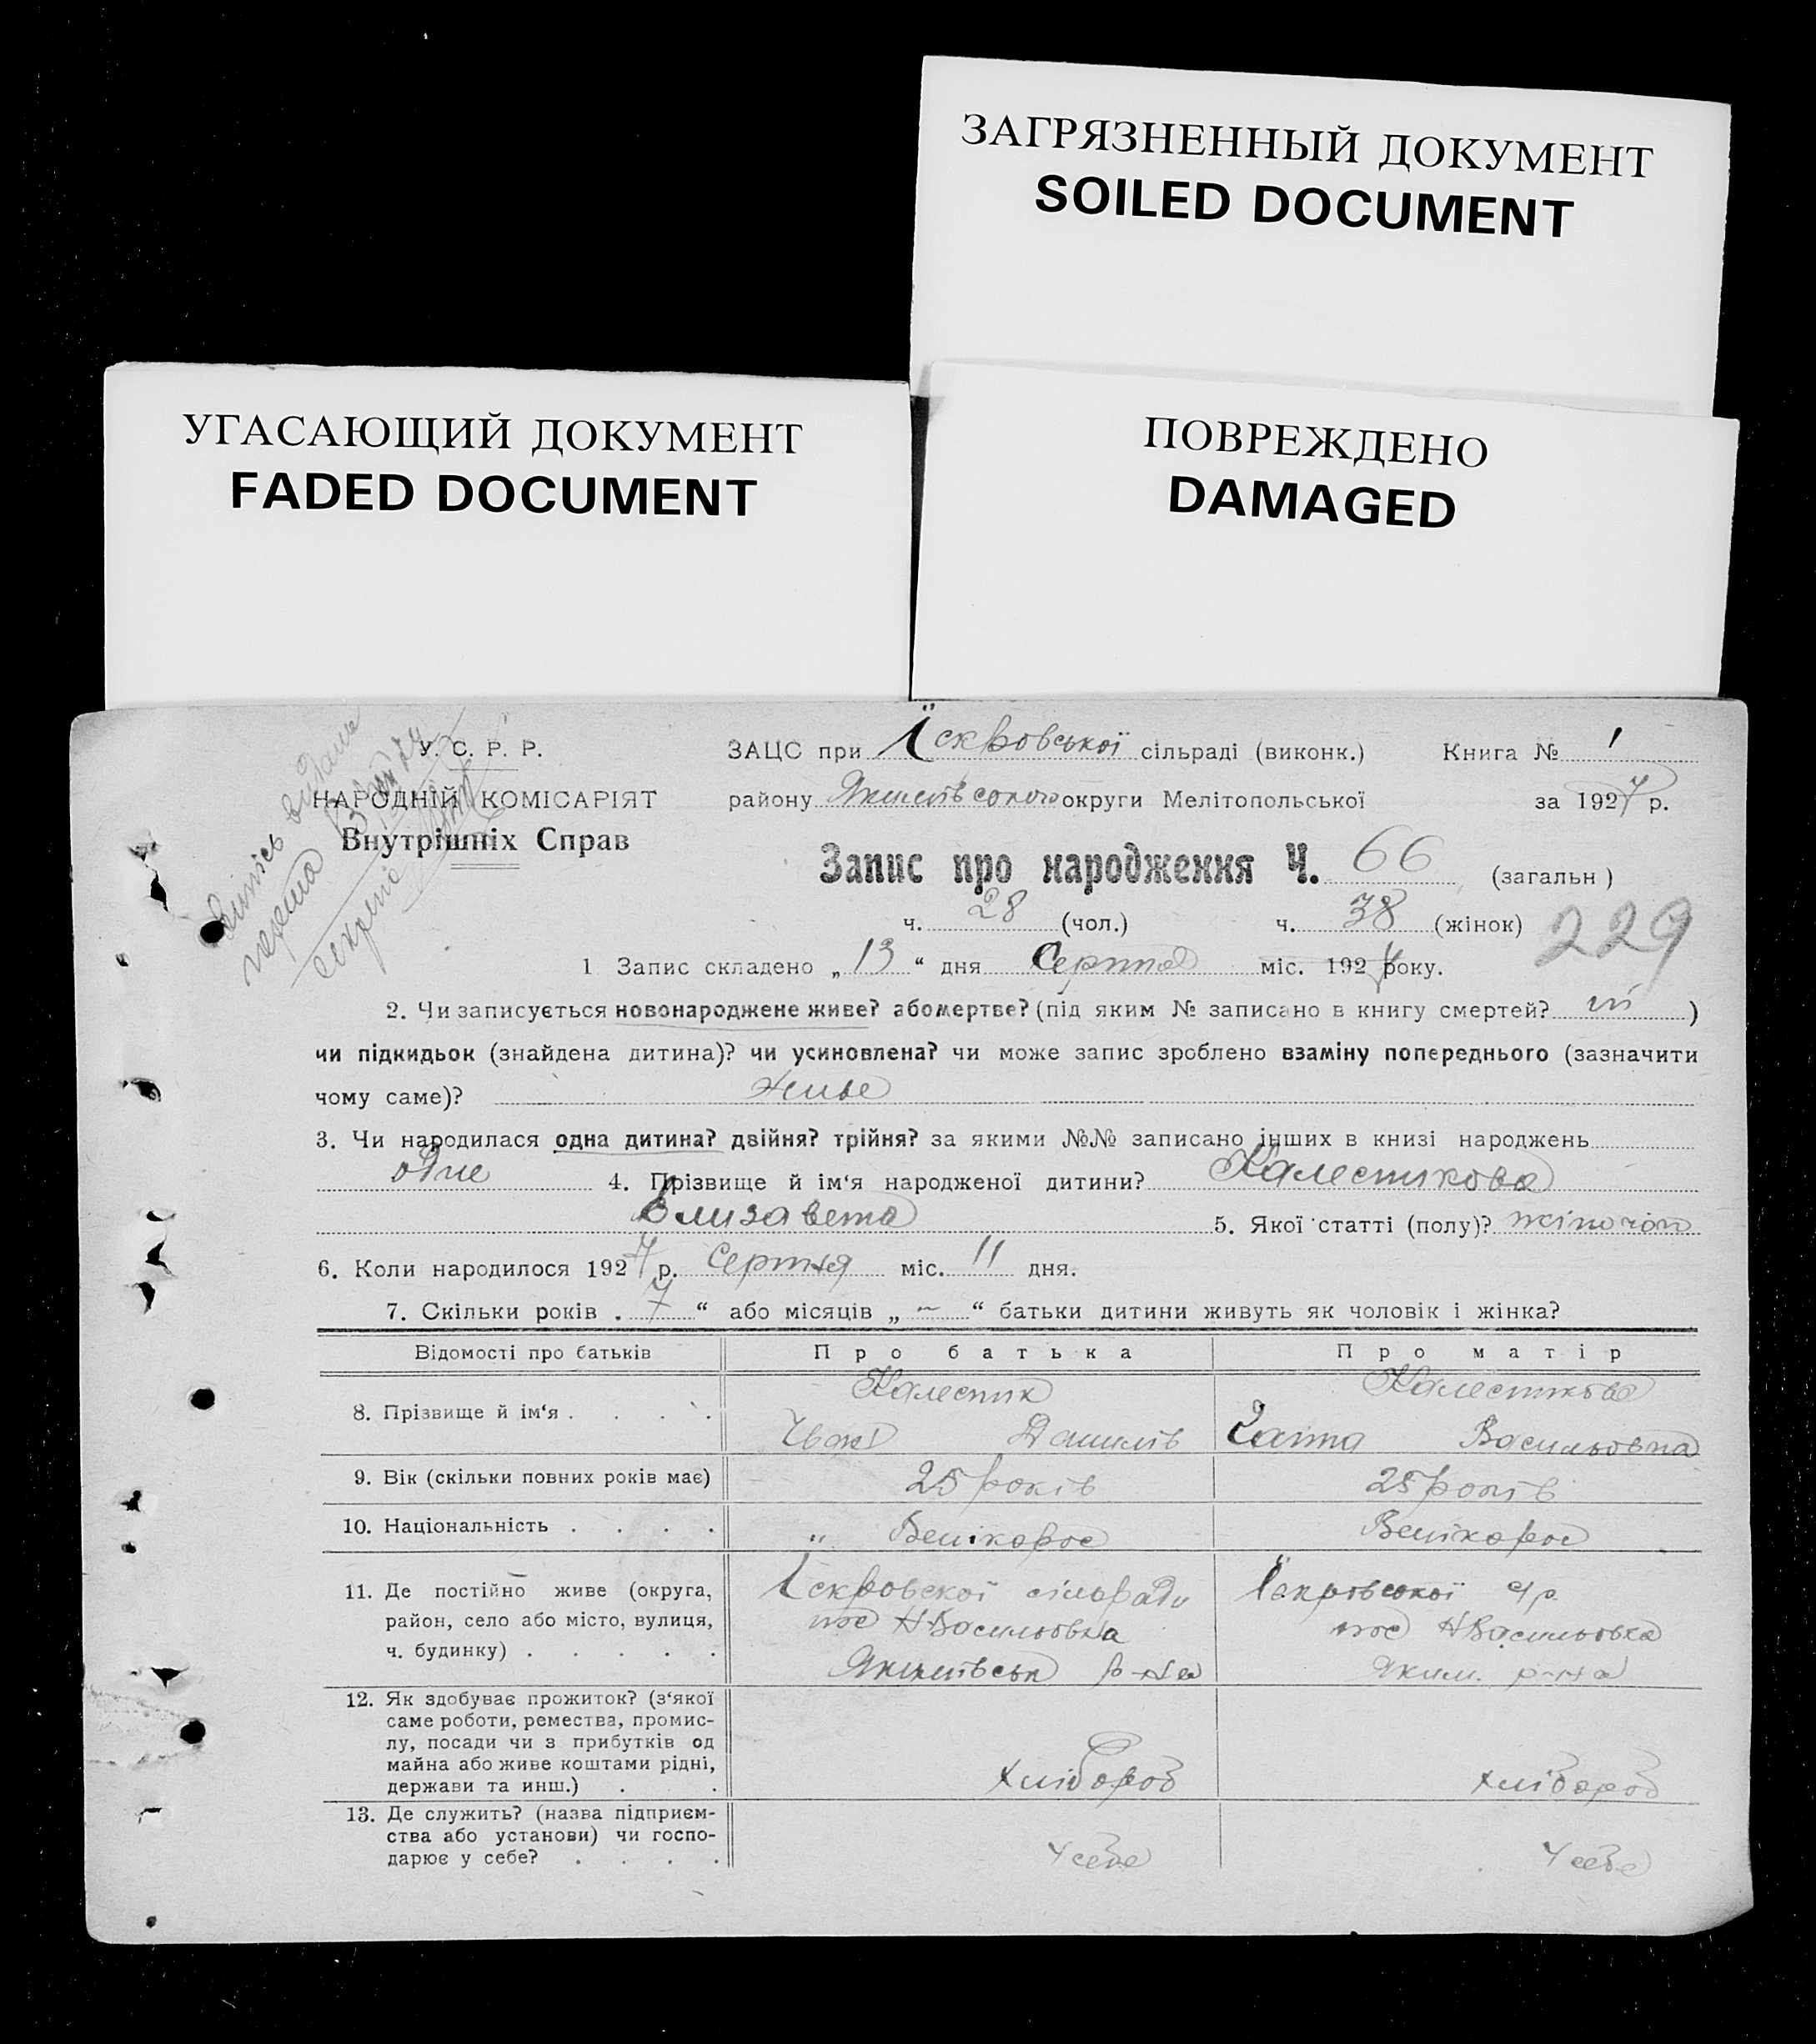 ЗАГРЯЗНЕННЫЙ ДОКУМЕНТ
SOILED DOCUMENT
УГАСАЮЩИЙ ДОКУМЕНТ
FADED DOCUMENT
ПОВРЕЖДЕНО
DAMAGED
У. С. Р. Р.
НАРОДНІЙ КОМІСАРІЯТ
Внутрішніх Справ
ЗАЦС при Їскровської сільраді (виконк.) Книга № 1
району округи Мелітопольської за 1927 р.
Запис про народження Ч. 66 (загальн )
ч. 28 (чол.) ч. 38 (жінок) 229
1 Запис складено „ 13 “ дня Серпня міс. 1927 року.
2. Чи записується новонароджене живе? або мертве? (під яким № записано в книгу смертей? ні )
чи підкидьок (знайдена дитина)? чи усиновлена? чи може запис зроблено взаміну попереднього (зазначити
чому саме)? живе
3. Чи народилася одна дитина? двійня? трійня? за якими №№ записано інших в книзі народжень
одне 4. Прізвище й ім‘я народженої дитини? Калестикова
Елизавета 5. Якої статті (полу)?
6. Коли народилося 1927 р. Серпня міс. 11 дня.
7. Скільки років . 7 “ або місяців „ – “ батьки дитини живуть як чоловік і жінка?
Відомості про батьків Про батька Про матір
8. Прізвище й ім‘я . . . . Калестик Калестикова
Іван Данилів Васильовна
9. Вік (скільки повних років має) 25 років 25 років
10. Національність . . . . „ Велікорос Велікорос
11. Де постійно живе (округа,
район, село або місто, вулиця,
ч. будинку) . . . . .
Їскровскої сільради
пос Н Васильовка
Якимівськ р-на
Їскрівської с/р.
пос Н Васильовка
Яким. р-на
12. Як здобуває прожиток? (з‘якої
саме роботи, ремества, промис-
лу, посади чи з прибутків од
майна або живе коштами рідні,
держави та инш.) . .
хлібороб хлібороб
13. Де служить? (назва підприєм-
ства або установи) чи госпо-
дарює у себе? . . . .
У себе У себе